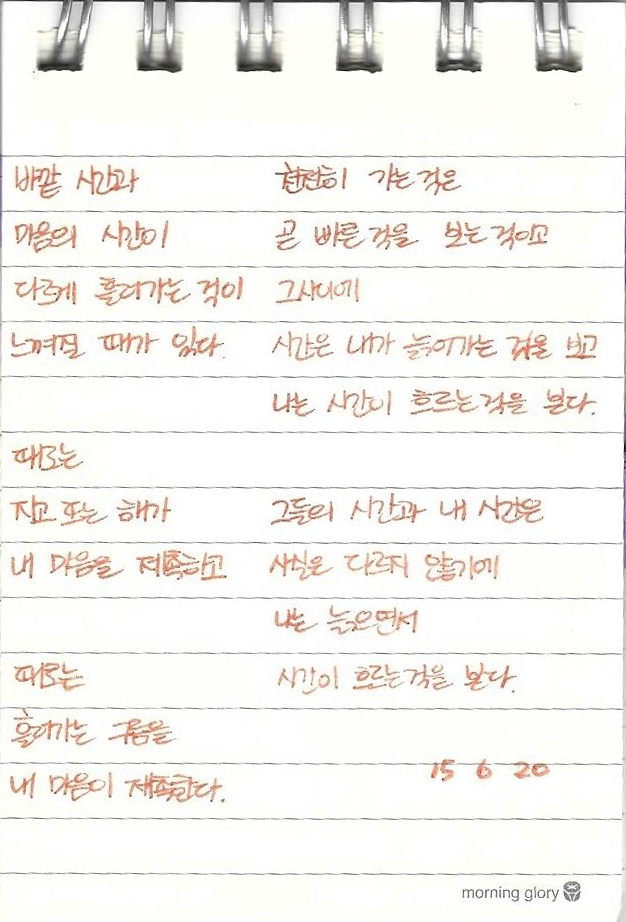 바깥 시간과
마음의 시간이
다르게 흘러가는 것이
느껴질 때가 있다.
때로는
지고 뜨는 해가
내 마음을 재촉하고
때로는
흘러가는 구름을
내 마음이 재촉한다.
천천히 가는 것은
곧 빠른 것을 보는 것이고
그 사이에
시간은 내가 늙어가는 것을 보고
나는 시간이 흐르는 것을 본다.
그들의 시간과 내 시간은
사실은 다르지 않기에
나는 늙으면서
시간이 흐르는 것을 본다.
15 6 20
morning glory